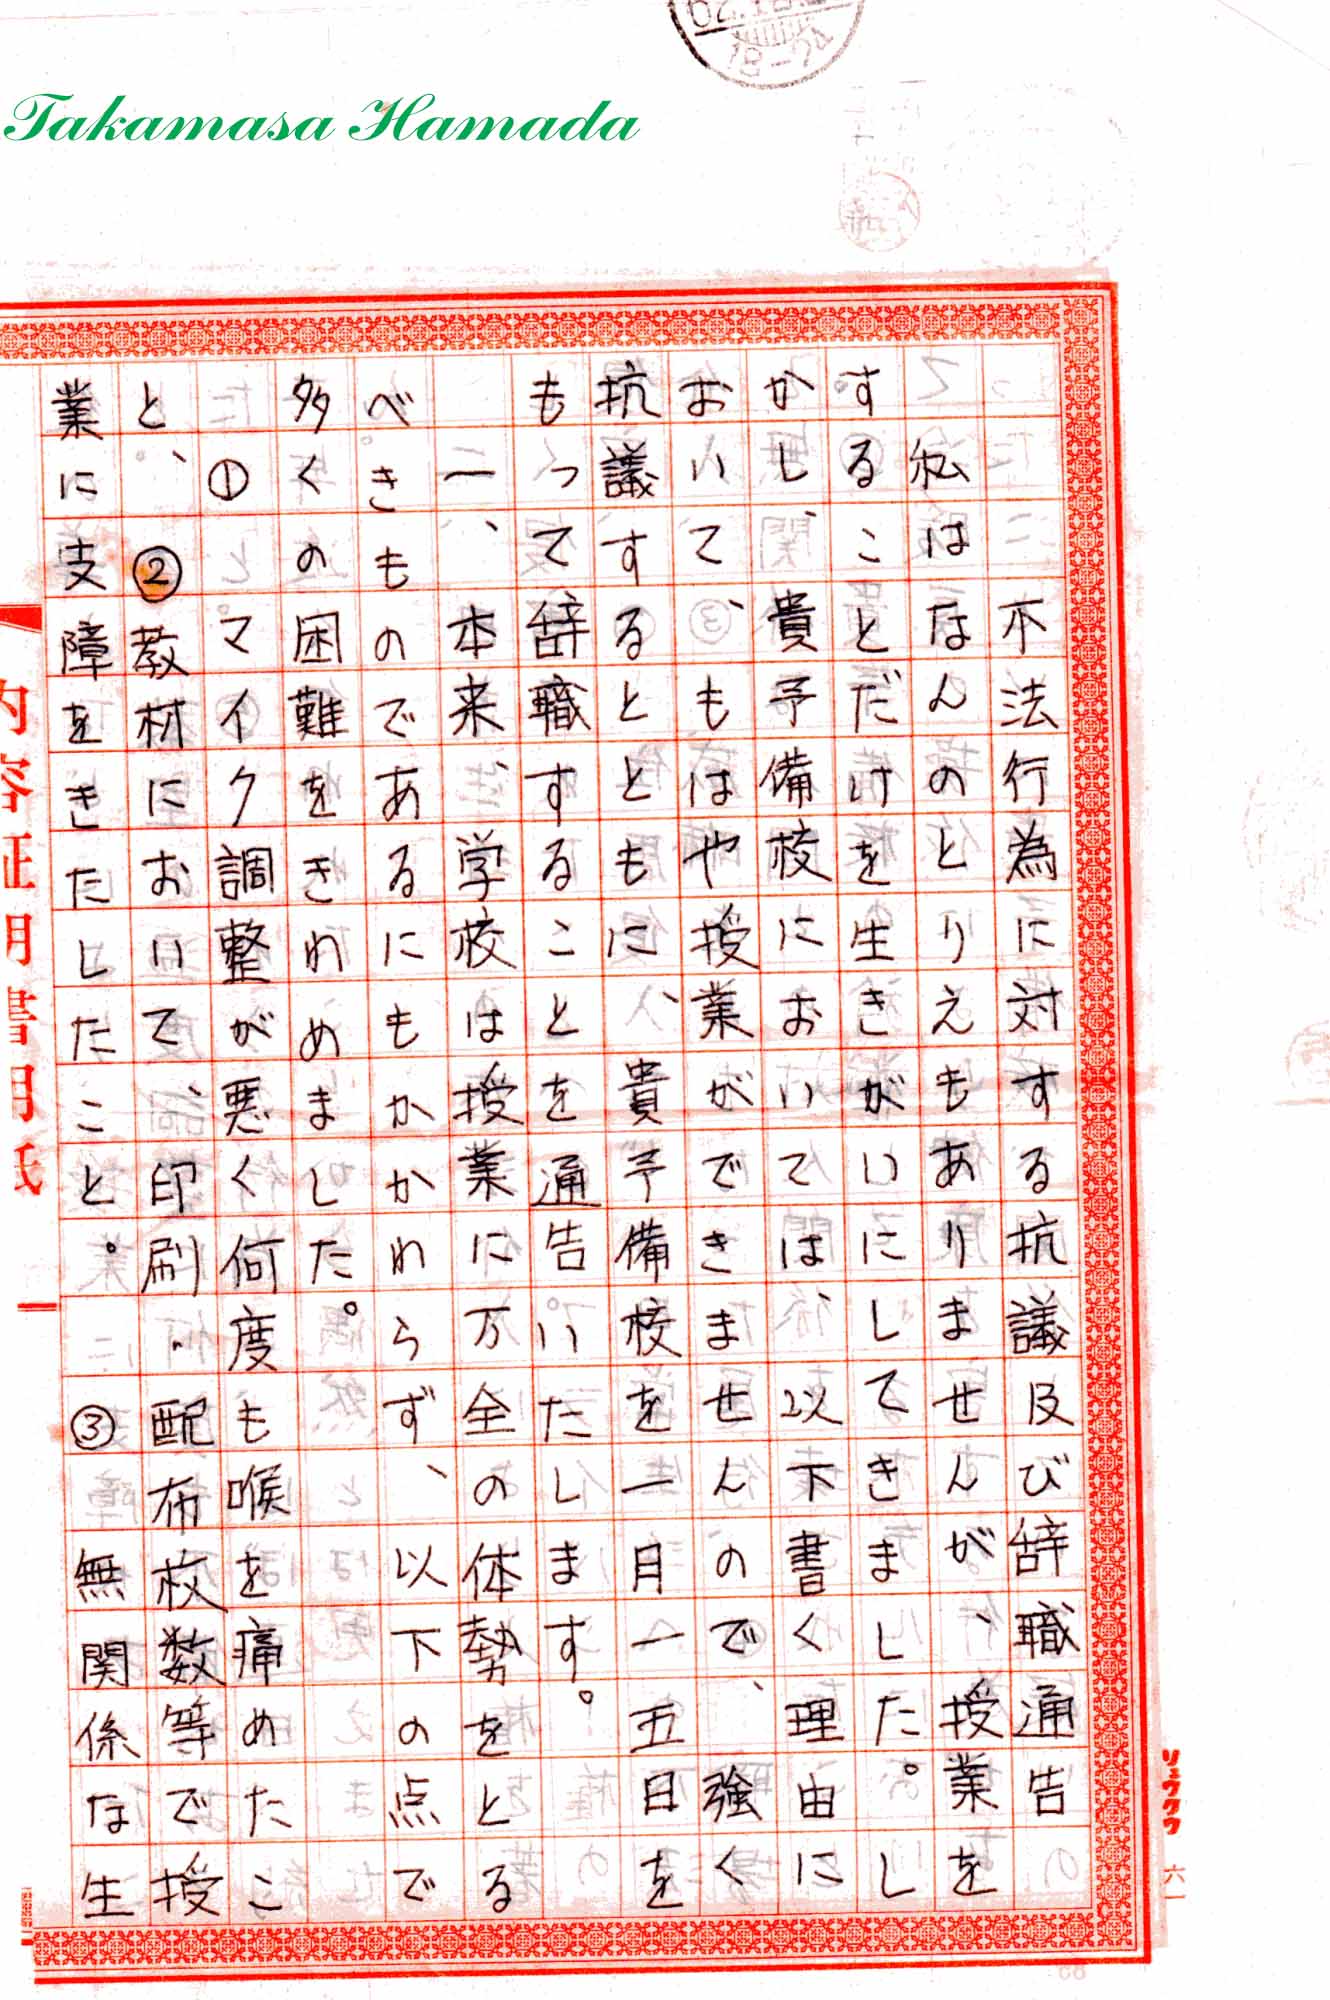 Takamasa Hamada
18-24
不法行為に対する抗議及び辞職通告
私はなんのとりえもありませんが、授業を
することだけを生きがいにしてきました。し
かし、貴予備校においては、以下書く理由に
おいて、もはや授業ができませんので、強く
抗議するとともに、貴予備校を一月一五日を
もって辞職することを通告いたします。
一、本来、学校は授業に万全の体勢をとる
べきものであるにもかかわらず、以下の点で
多くの困難をきわめました。
①マイク調整が悪く何度も喉を痛めたこ
と、②教材において、印刷・配布枚数等で授
業に支障をきたしたこと。③無関係な生
内容証明書用紙
リュウグウ 六一